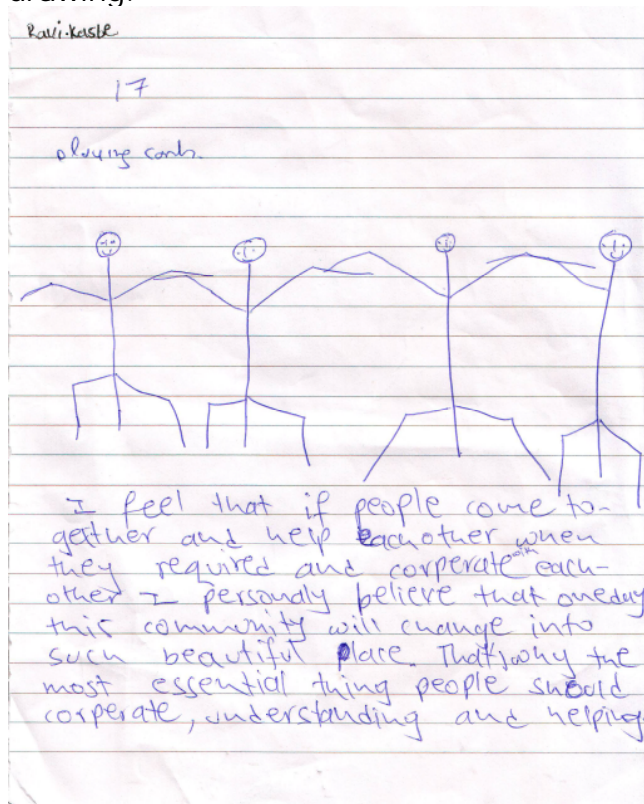 drawing.
Ravi.kaste
17
I feel that if people come to-
gether and help eachother when
they required and corperate with each-
other I personaly believe that oneday
this community will change into
such beautiful place. That,why the
most essential thing people should
corperate, understanding and helping